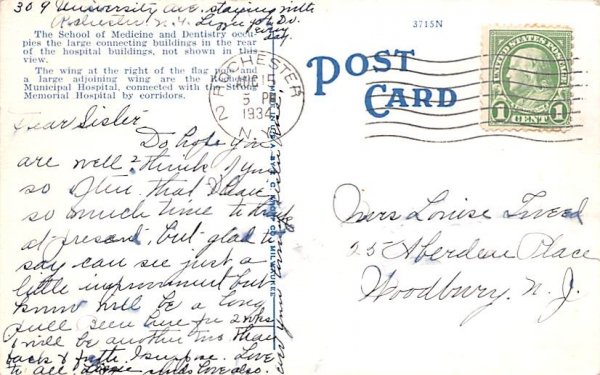 309 University Ave. staying with
Rochester N.Y.
The School of Medicine and Dentistry occu-
pies the large connecting buildings in the rear
of the hospital buildings, not shown in this
view.
The wing at the right of the flag pole and
a large adjoining wing are the Rochester
Municipal Hospital, connected with the Strong
Memorial Hospital by corridors.
3715N
POST
CARD
ROCHESTER
2
15
5 PM
1934
N.Y.
UNITED STATES POSTAGE
1 1
CENT
Dear Sister
Do hope you
are well I think of you
so often that I have
so much time to think
at present, but glad to
say can see just a
little improvement but
know will be a long
pull been here for 2 wks
I will be another two then
back & forth I suppose. Love
to all. sends love also.
MILWAUKEE
Mrs Louise Tweed
25 Aberdeen Place
Woodbury. N. J.